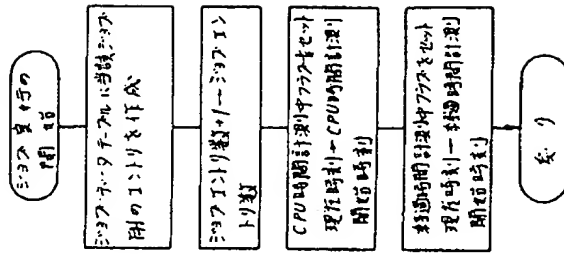 ジョブ実行の
開始
ジョブ・データテーブルに当該ジョブ
用のエントリを作成
ジョブエントリ数+1→ジョブエン
トリ数
CPU時間計測中フラグをセット
現在時刻→CPU時間計測
開始時刻
経過時間計測中フラグをセット
現在時刻→経過時間計測
開始時刻
終り